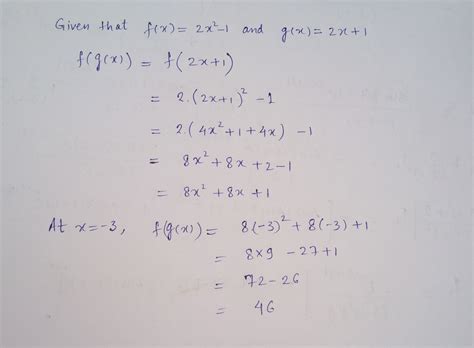 Given that f(x) = 2x²-1 and g(x) = 2x+1
f(g(x)) = f(2x+1)
= 2.(2x+1)² -1
= 2.(4x²+1+4x) -1
= 8x²+8x+2-1
= 8x²+8x+1
At x=-3, f(g(x)) = 8(-3)²+8(-3)+1
= 8x9 -27+1
= 72-26
= 46